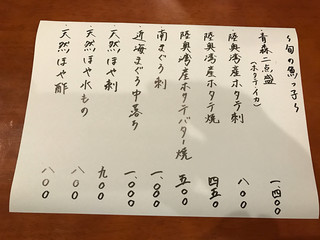 〜旬の魚っ子〜
青森二点盛 一、四〇〇
(ホタテ、イカ)
陸奥湾産ホタテ刺 八〇〇
陸奥湾産ホタテ焼 四五〇
陸奥湾産ホタテバター焼 五〇〇
・南まぐろ刺 一、〇〇〇
・近海まぐろ中落ち 一、〇〇〇
・天然ほや刺 九〇〇
・天然ほや水もの 八〇〇
・天然ほや酢 八〇〇